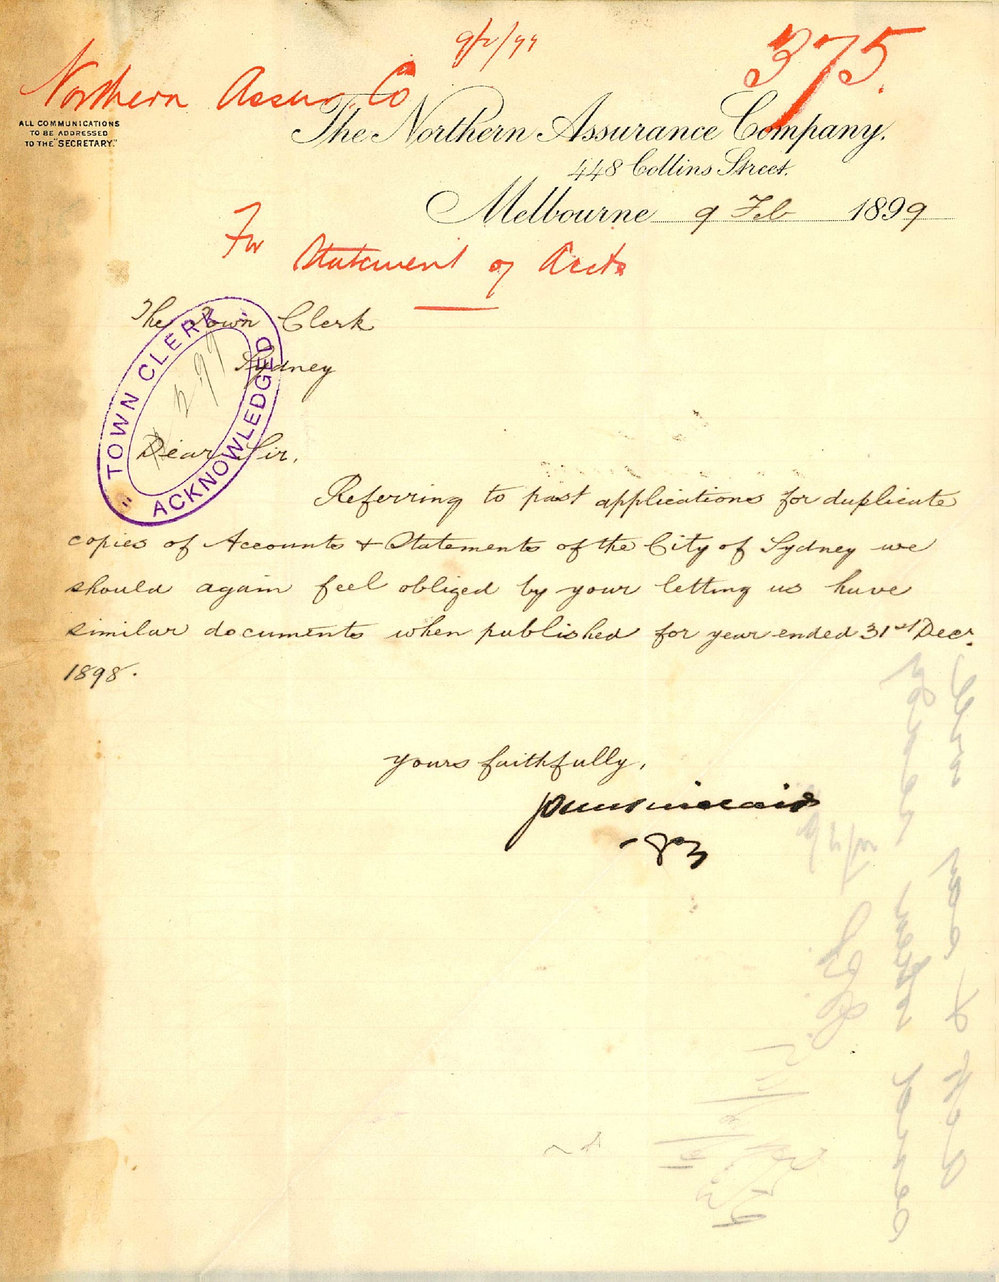 9/2/99
375.
Northern Assur. Co
ALL COMMUNICATIONS
TO BE ADDRESSED
TO THE "SECRETARY."
The Northern Assurance Company.
448 Collins Street.
Melbourne 9 Feb 1899
For Statement of Accts
The Town Clerk
Sydney
TOWN CLERK
ACKNOWLEDGED
Dear Sir,
Referring to past applications for duplicate
copies of Accounts & Statements of the City of Sydney we
should again feel obliged by your letting us have
similar documents when published for year ended 31st Decr.
1898.
Yours faithfully,